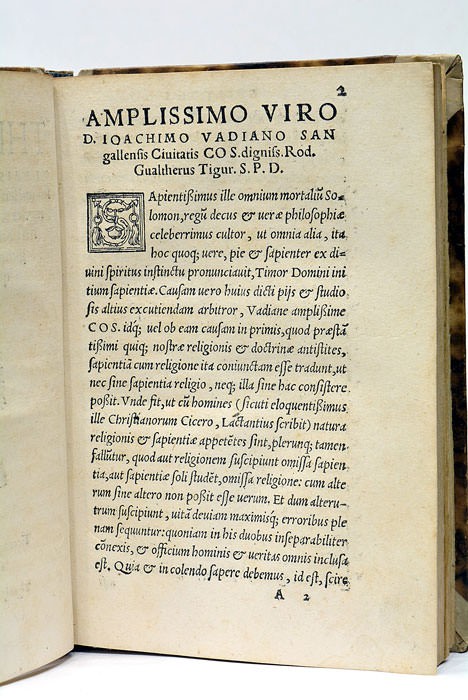 2
AMPLISSIMO VIRO
D. IOACHIMO VADIANO SAN
gallensis Ciuitatis COS. digniss. Rod.
Gualtherus Tigur. S. P. D.
SApientißimus ille omnium mortaliũ So-
lomon, regũ decus & ueræ philosophiæ
celeberrimus cultor, ut omnia alia, ita
hoc quoq; uere, pie & sapienter ex di-
uini spiritus instinctu pronunciauit, Timor Domini ini
tium sapientiæ. Causam uero huius dicti pijs & studio
sis altius excutiendam arbitror, Vadiane amplißime
COS. idq; uel ob eam causam in primis, quod præstã
tißimi quiq; nostræ religionis & doctrinæ antistites,
sapientiã cum religione ita coniunctam esse tradunt, ut
nec sine sapientia religio, neq; illa sine hac consistere
poßit. Vnde fit, ut cũ homines (sicuti eloquentißimus
ille Christianorum Cicero, Lactantius scribit) natura
religionis & sapientiæ appetẽtes sint, plerunq; tamen
fallũtur, quod aut religionem suscipiunt omissa sapien
tia, aut sapientiæ soli studẽt, omissa religione: cum alte
rum sine altero non poßit esse uerum. Et dum alteru-
trum suscipiunt, uitã deuiam maximisq; erroribus ple
nam sequuntur: quoniam in his duobus inseparabiliter
cõnexis, & officium hominis & ueritas omnis inclusa
est. Quia & in colendo sapere debemus, id est, scire
A 2